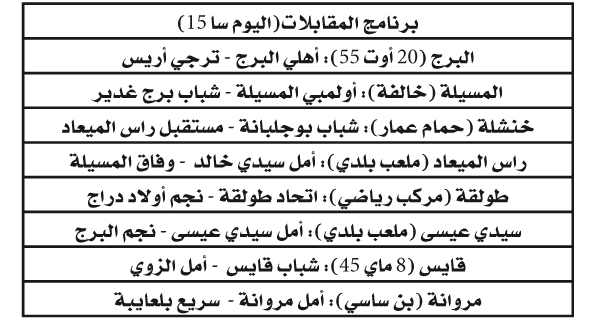 برنامج المقابلات(اليوم سا 15)
البرج (20 أوت 55): أهلي البرج - ترجي أريس
المسيلة (خالفة): أولمبي المسيلة - شباب برج غدير
خنشلة (حمام عمار): شباب بوجلبانة - مستقبل راس الميعاد
راس الميعاد (ملعب بلدي): أمل سيدي خالد - وفاق المسيلة
طولقة (مركب رياضي): اتحاد طولقة - نجم أولاد دراج
سيدي عيسى (ملعب بلدي): أمل سيدي عيسى - نجم البرج
قايس (8 ماي 45): شباب قايس - أمل الزوي
مروانة (بن ساسي): أمل مروانة - سريع بلعايبة